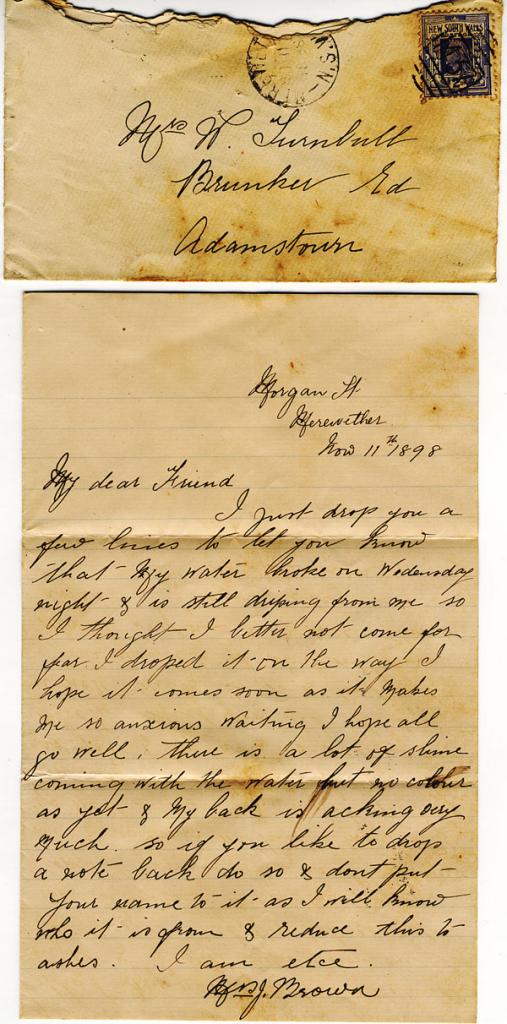 NEW SOUTH WALES
N.S.W
Mrs W. Turnbull
Brunker Rd
Adamstown
Morgan St
Merewether
Nov 11th 1898
My dear Friend
I just drop you a
few lines to let you know
that My water broke on Wedensday
night & is still driping from me so
I thought I better not come for
fear I droped it on the way I
hope it comes soon as it Makes
Me so anxious Waiting I hope all
go well. there is a lot of slime
coming with the water but no colour
as yet & My back is acking very
Much. so if you like to drop
a note back do so & dont put
Your name to it as I will know
who it is from & reduce this to
ashes. I am etce.
Mrs J. Brown